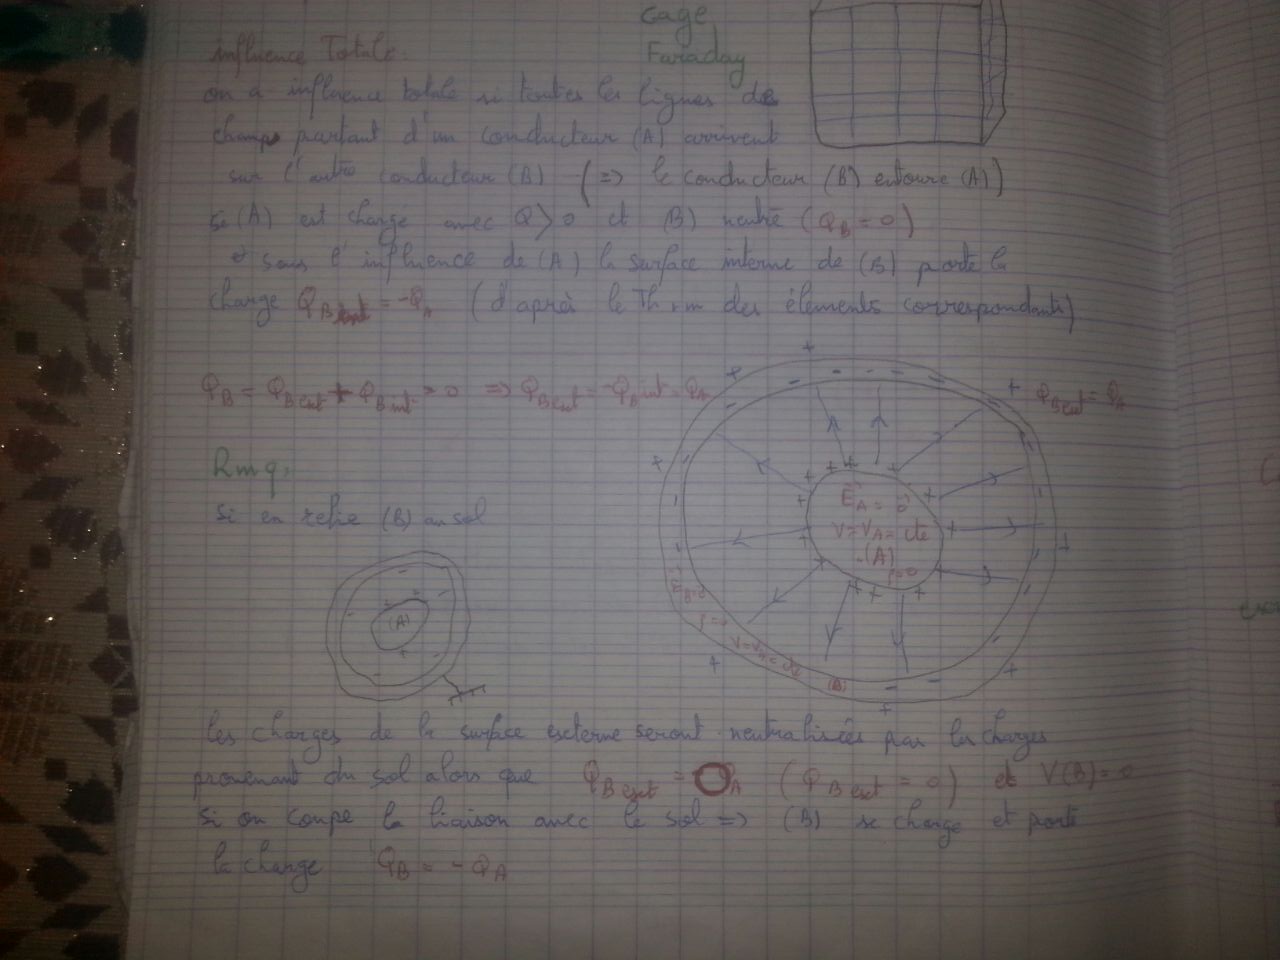 cage
Faraday
influence Totale.
on a influence totale si toutes les lignes de
champs partant d'un conducteur (A) arrivent
sur l'autre conducteur (B) (=> le conducteur (B) entoure (A))
si (A) est chargé avec Q > 0 et (B) neutre (QB = 0)
sous l'influence de (A) la surface interne de (B) porte la
charge QB int = -QA (d'après le Th-m des élements correspondants)
QB = QB ext + QB int = 0 => QB ext = -QB int = QA
QB ext = QA
Rmq:
si on relie (B) au sol
EA = 0
V = VA = cte
(A)
ρ=0
EB=0
(B)
(A)
les charges de la surface externe seront neutralisées par les charges
provenant du sol alors que QB ext = 0 (QB ext = 0) et V(B) = 0
si on coupe la liaison avec le sol => (B) se charge et porte
la charge QB = - QA